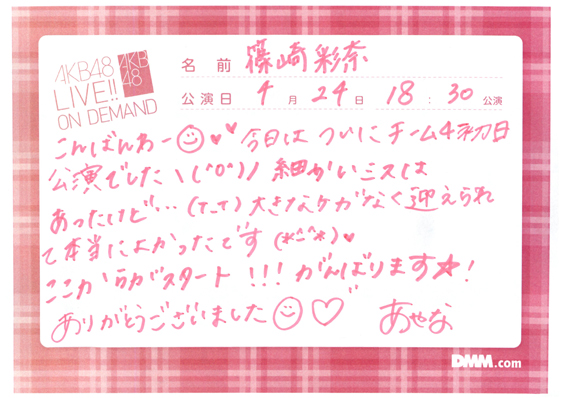 AKB48
LIVE!!
ON DEMAND
AKB
48
名 前 篠崎彩奈
公演日 4 月 24 日 18 : 30 公演
こんばんわー☺♥♥ 今日は ついに チーム4初日
公演でした\(^o^)/ 細かいミスは
あったけど…(T_T) 大きなケガなく迎えられ
て本当によかったです (*^^*)♥
ここからがスタート!!! がんばります★!
ありがとうございました☺♡ あやな
DMM.com